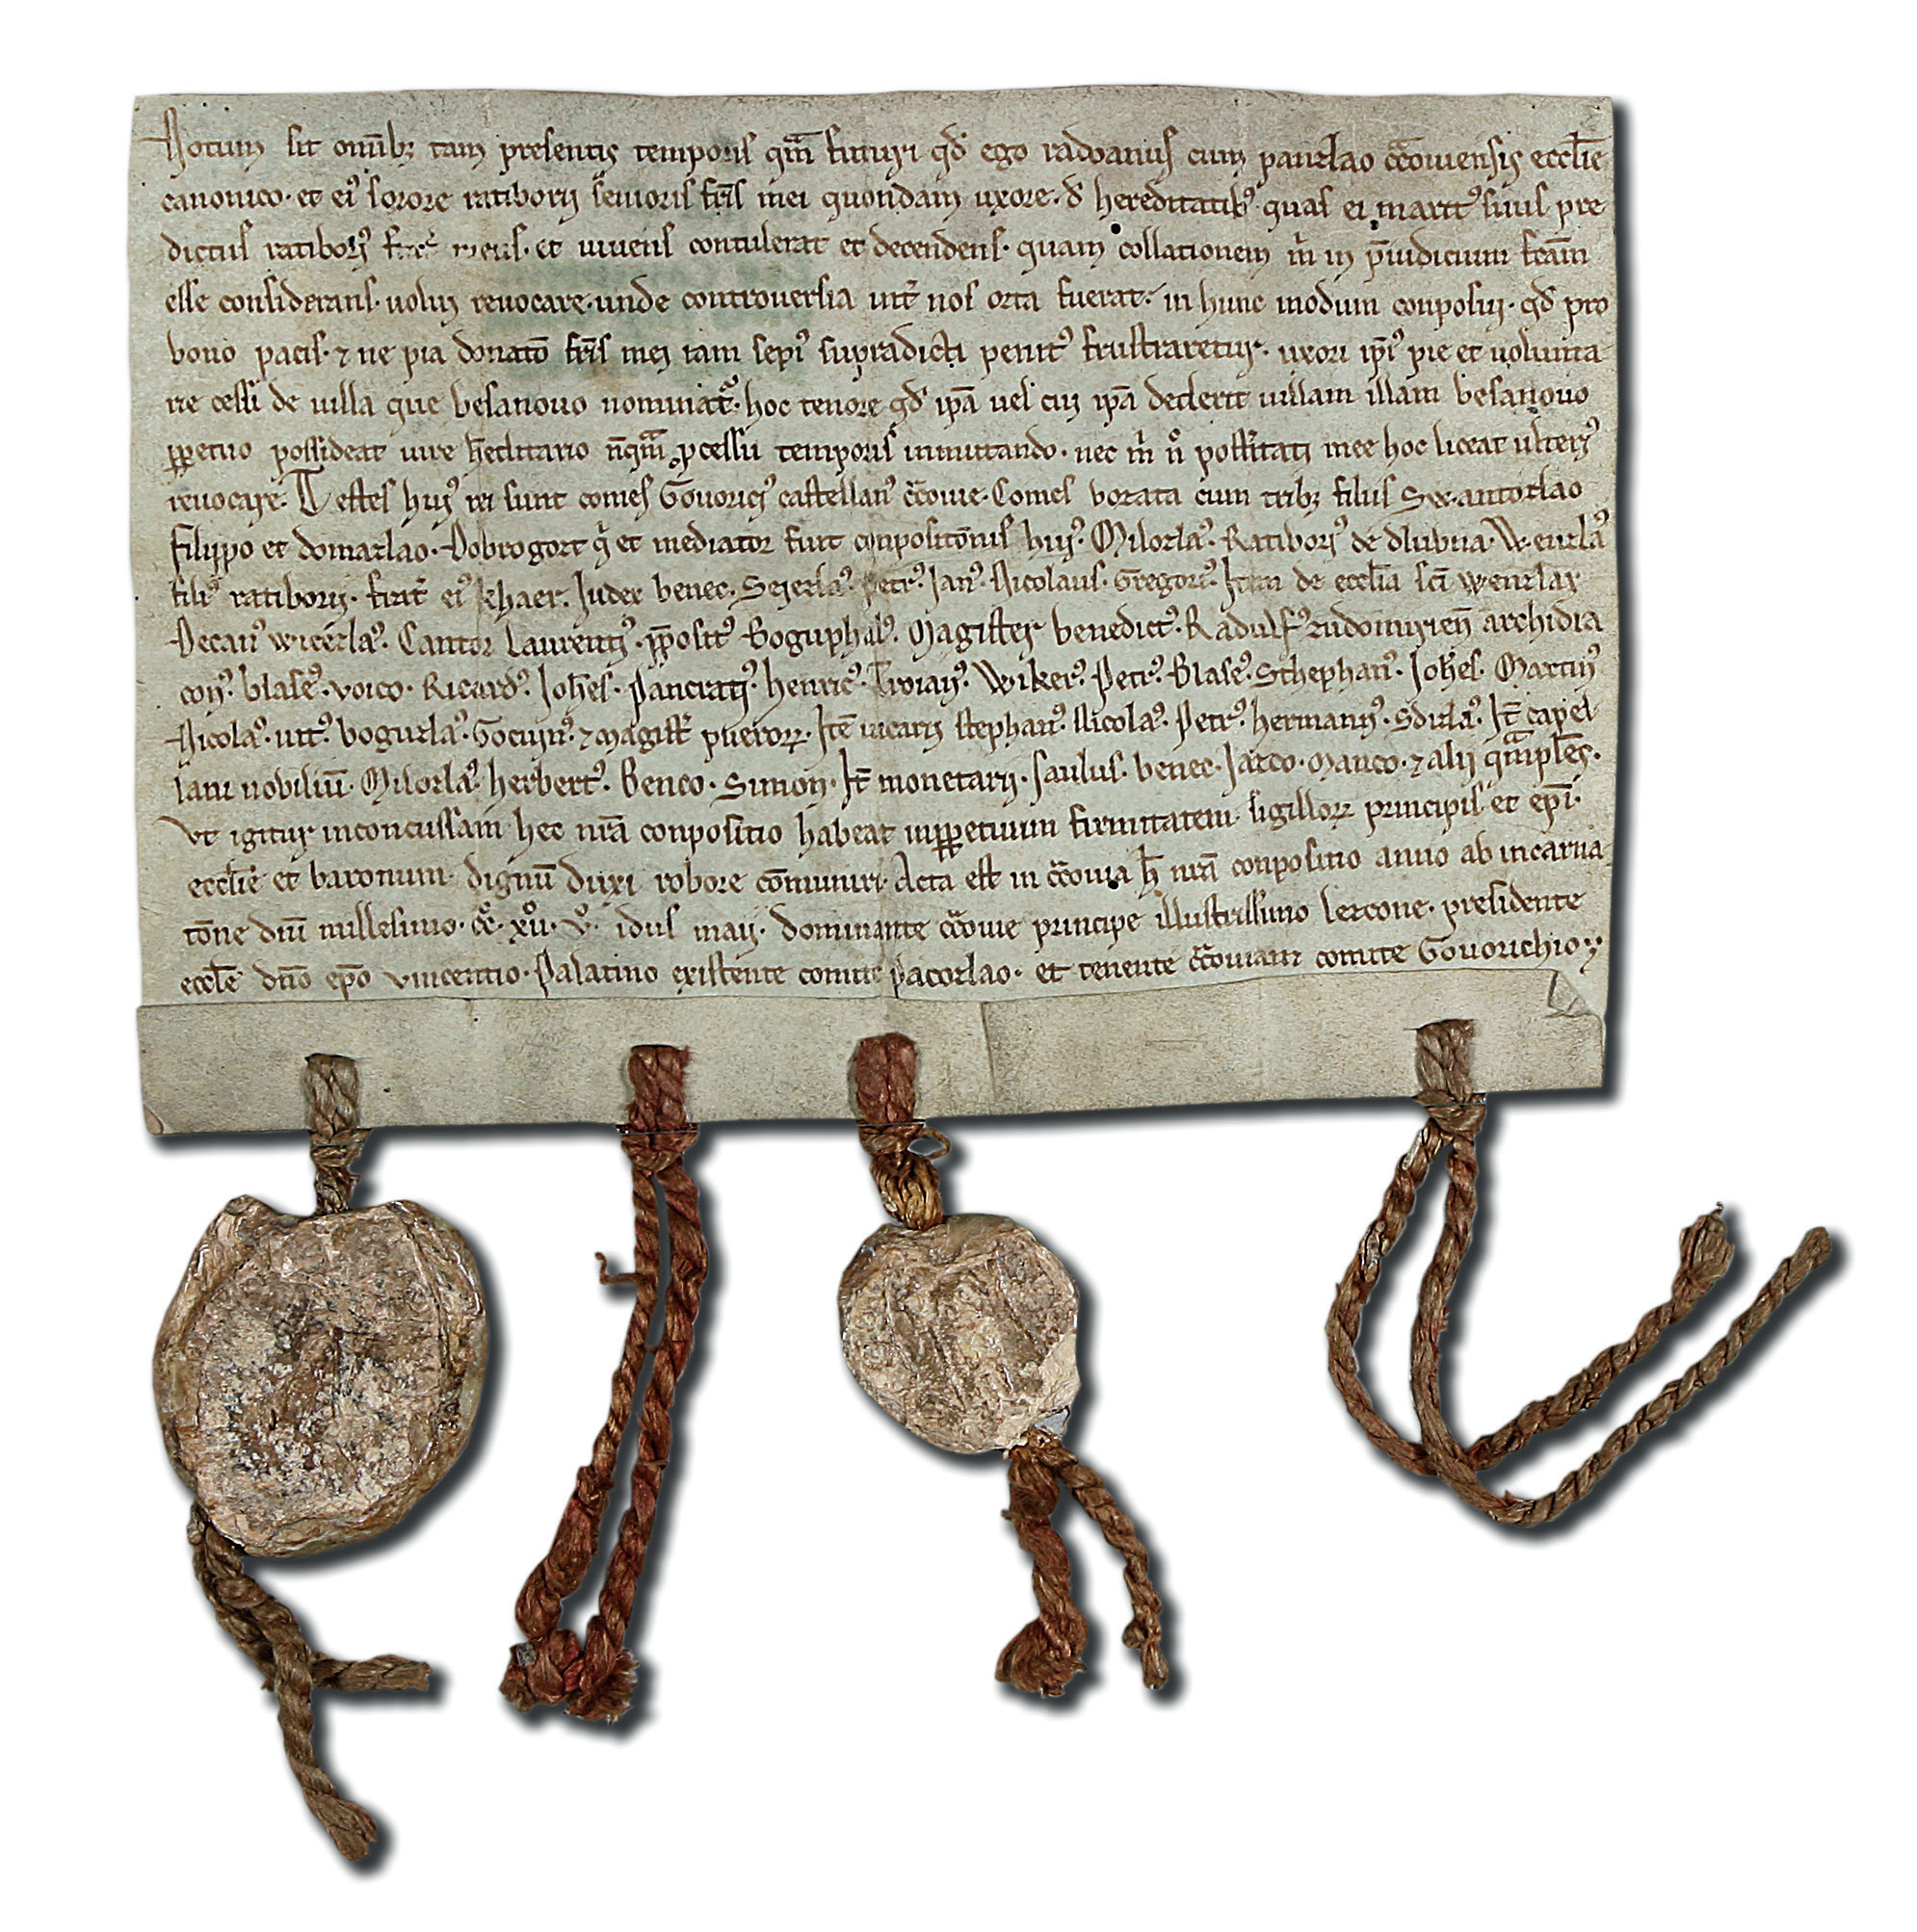 Notum sit omībꝫ tam presentis temporis qm̄ futuri qd̄ ego radoanus cum pauzlao cͣcouiensis eccl̄ie
canonico· et eiꝰ sorore ratiborii senioris fr̄is mei quondam uxore· d̄ hereditatibꝰ quas ei maritꝰ suus pre
dictus ratiborꝰ meus· et uiuens contulerat et decendens· quam collationem m̄ in p̄iudicium fcām
esse considerans· uolui reuocare· unde controuersia int̄ nos orta fuerat· in hunc modum conposui· qd̄ pro
bono pacis· ⁊ ne pia donatō fr̄is mei iam sepiꝰ supradicti penitꝰ frustraretur· uxori ipiꝰ pie et uolunta
rie cessi de uilla que besanouo nominatͣ· hoc tenore qd̄ ip̄a uel cui ip̄a dederit uillam illam besanouo
ꝑpetuo possideat iure h̄editario nūqͣm ꝓcessu temporis inmutando· nec m̄ nͦ post̄itati mee hoc liceat ulteriꝰ
reuocare· Testes huiꝰ rei sunt comes Gouoriciꝰ castellanꝰ cͣcouie· Comes vozata cum tribꝫ filiis Sẜantozlao
filippo et domazlao· Dobrogost qͥ et mediator fuit conpositōnis huiꝰ· Milozlaꝰ· Ratiborꝰ de dlubna· Wenzlaꝰ
filiꝰ ratiborii· frat̄ eiꝰ Iudex benec· Petrꝰ· Ianꝰ· Nicolaus· Gregoriꝰ· Item de eccl̄ia sc̄i wenzlay
Decanꝰ wicezlaꝰ· Cantor Laurentiꝰ· p̄positꝰ Boguphalꝰ· Magister benedictꝰ· Radulfꝰ zudomirien̄ archidia
conꝰ· blasiꝰ· voico· Ricardꝰ· Ioh̄es· Pancratiꝰ· henricꝰ· Troianꝰ· Wikerꝰ· Petrꝰ· Blasiꝰ· Schephanꝰ· Ioh̄es· Martinꝰ
Nicolaꝰ· uitꝰ· boguzlaꝰ· Gocuinꝰ· ⁊ magist̄ pueroꝝ· Itē uicarii stephanꝰ· Nicolaꝰ· Petrꝰ· hermanꝰ· Sdizlaꝰ· It̄ capel
lani nobiliū· Milozlaꝰ· herbertꝰ· Benco· Simon· It̄ monetarii· saulus· benec· Iarco· manco· ⁊ alii qͣmpl̄es·
Vt igitur inconcussam hec nr̄a conpositio habeat inꝑpetuum firmitatem· sigilloꝝ principis et ep̄i·
eccl̄ie et baronum· dignū duxi robore cōmuniri· Acta est in cͣcouia h̄ nr̄a conpositio anno ab incarna
tōne dn̄i millesimo· ccͦ· xͦii· vͦ· idus maii· dominante cͣcouie principe illustrissimo lezcone· presidente
eccl̄ie dn̄o ep̄o vincentio· Palatino existente comite pacozlao· et tenente cͣcouiam comite Gouorichio